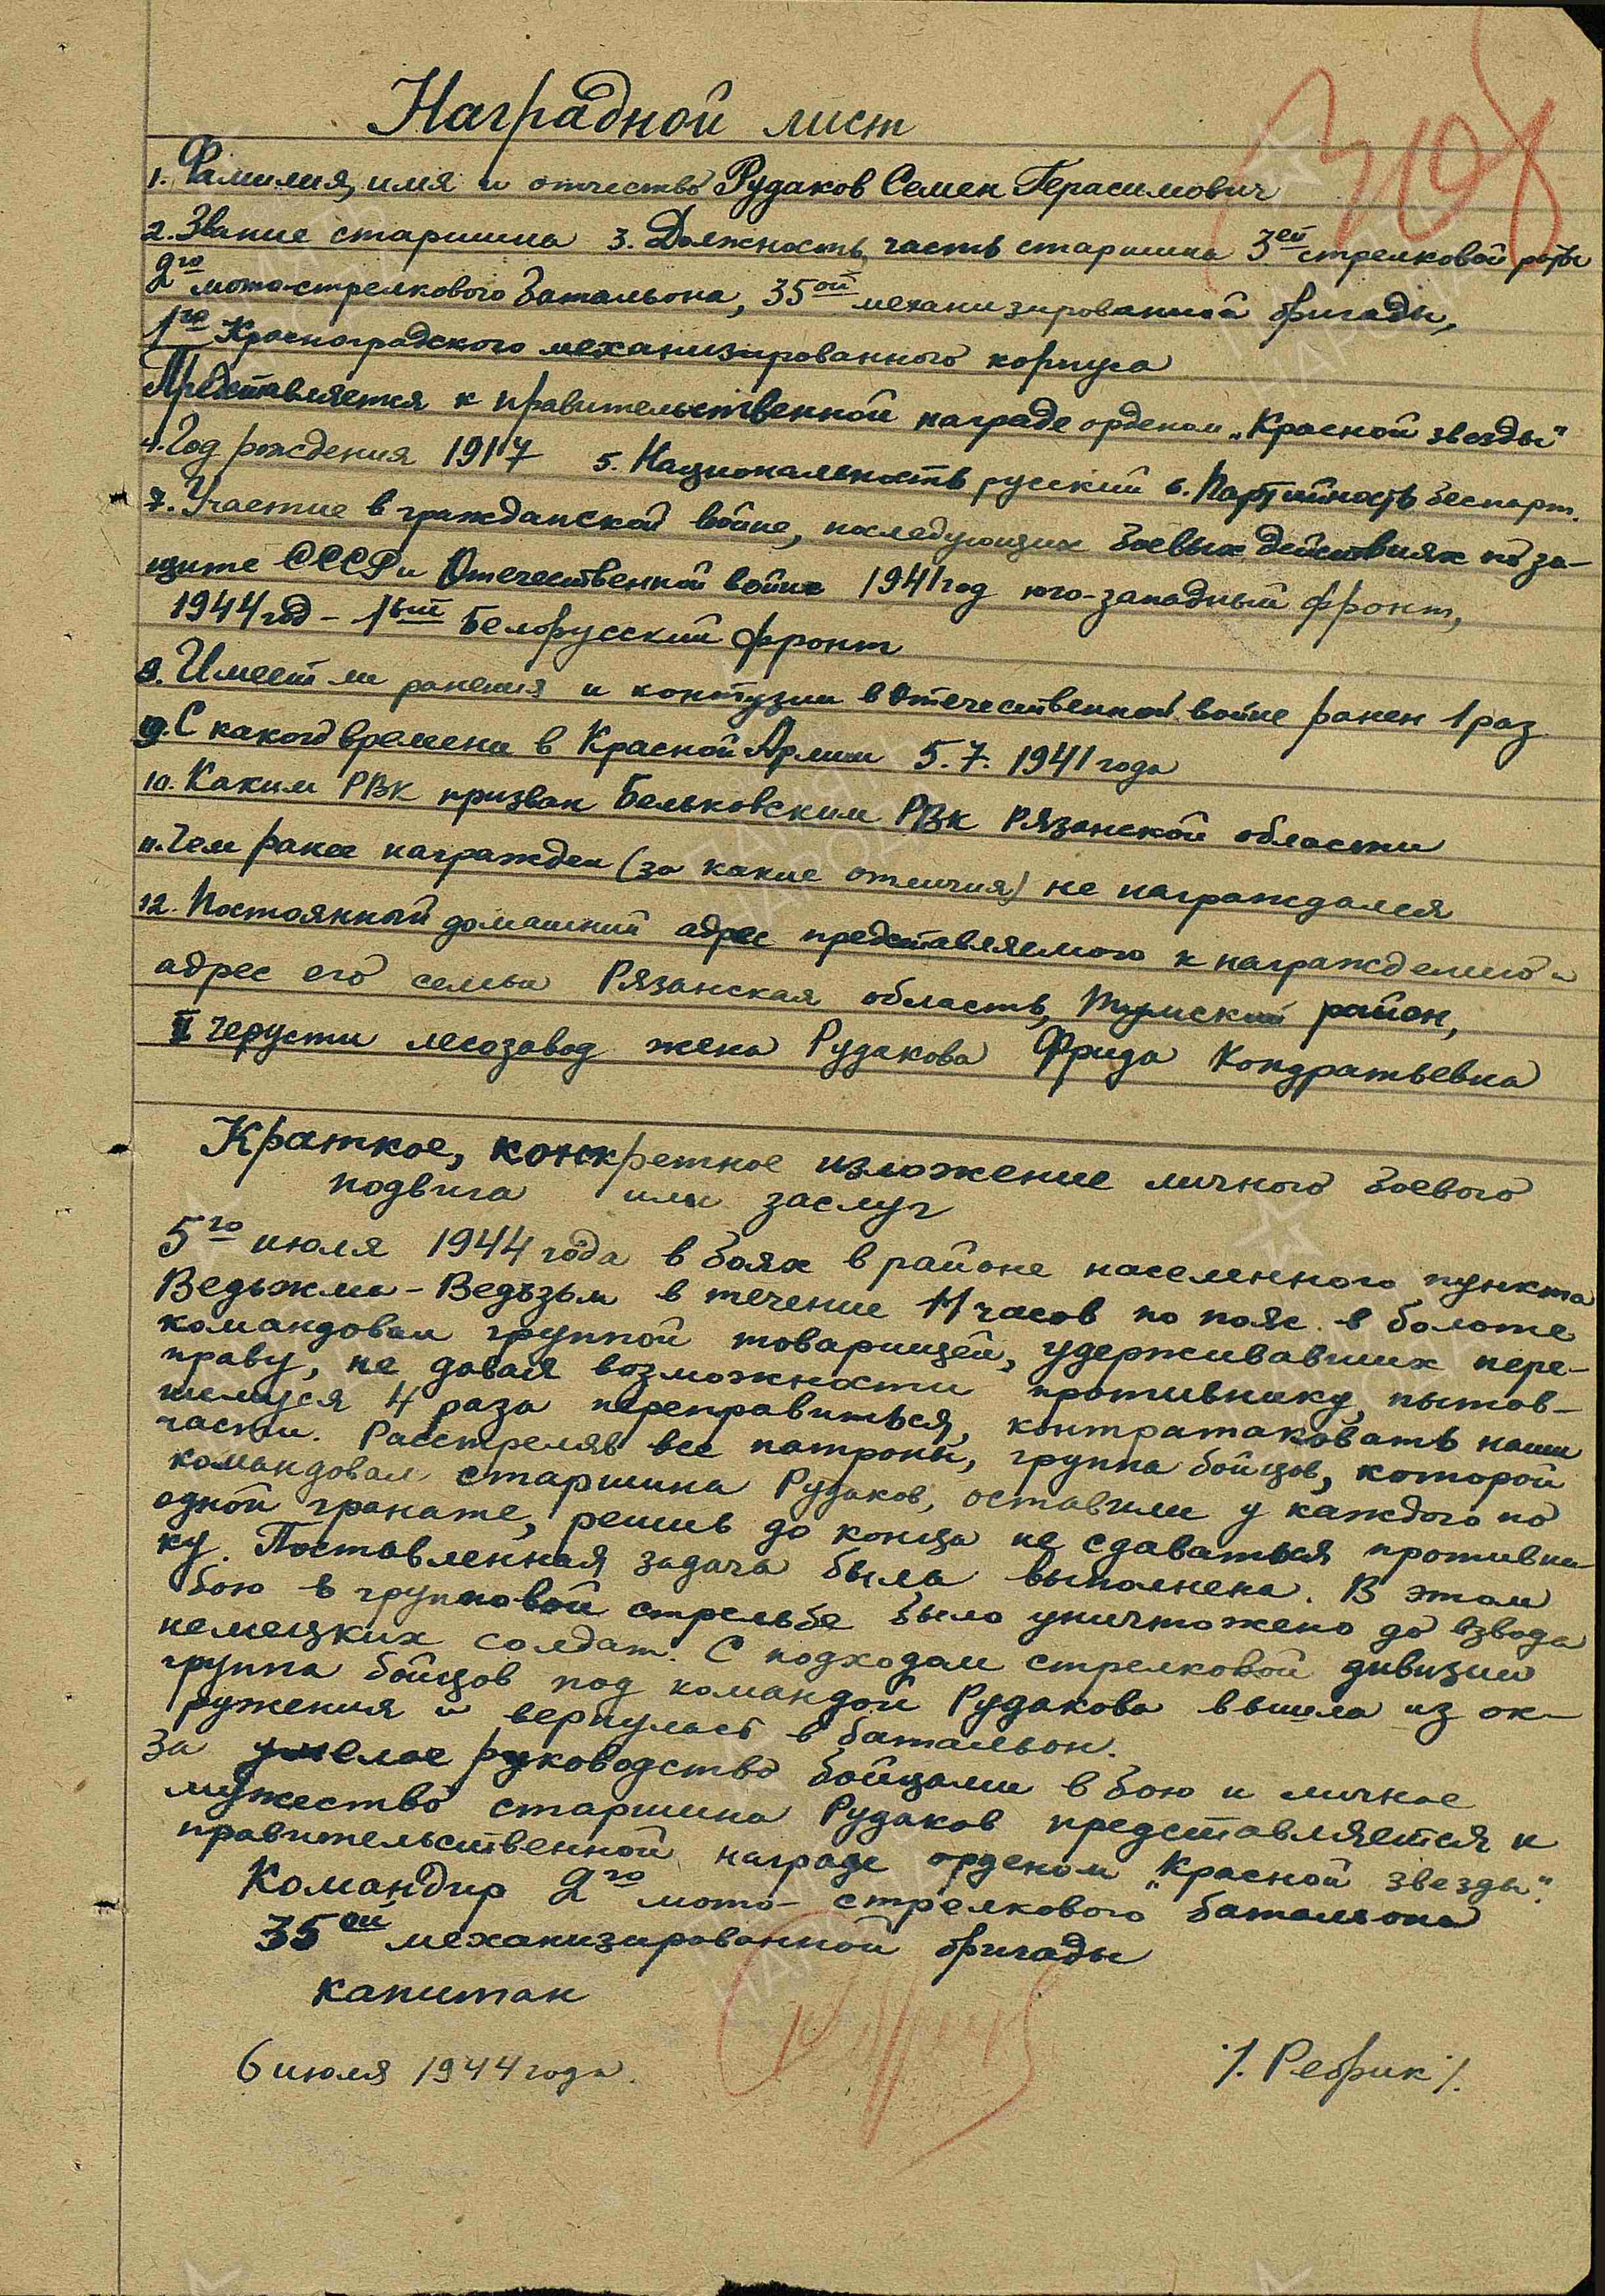 Наградной лист
308
1. Фамилия, имя и отчество Рудаков Семен Герасимович
2. Звание старшина 3. Должность, часть старшина 3ей стрелковой роты
2го мото-стрелкового батальона, 35ой механизированной бригады,
1го Красноградского механизированного корпуса
Представляется к правительственной награде орденом „Красной звезды"
4. Год рождения 1917 5. Национальность русский 6. Партийность беспарт.
7. Участие в гражданской войне, последующих боевых действиях по за-
щите СССР и Отечественной войне 1941 год юго-западный фронт,
1944 год - 1ый Белорусский фронт
8. Имеет ли ранения и контузии в Отечественной войне ранен 1 раз
9. С какого времени в Красной Армии 5.7. 1941 года
10. Каким РВК призван Бельковским РВК Рязанской области
11. Чем ранее награжден (за какие отличия) не награждался
12. Постоянный домашний адрес представляемого к награждению и
адрес его семьи Рязанская область, Тумский район,
Черусти лесозавод жена Рудакова Фрида Кондратьевна
Краткое, конкретное изложение личного боевого
подвига или заслуг
5го июля 1944 года в боях в районе населенного пункта
Ведьжми - Ведьзьм в течение 11 часов по пояс в болоте
командовал группой товарищей, удерживавших пере-
праву, не давая возможности противнику, пытав-
шемуся 4 раза переправиться, контратаковать наши
части. Расстреляв все патроны, группа бойцов, которой
командовал старшина Рудаков, оставили у каждого по
одной гранате, решив до конца не сдаваться противни-
ку. Поставленная задача была выполнена. В этом
бою в групповой стрельбе было уничтожено до взвода
немецких солдат. С подходом стрелковой дивизии
группа бойцов под командой Рудакова вышла из ок-
ружения и вернулась в батальон.
За умелое руководство бойцами в бою и личное
мужество старшина Рудаков представляется к
правительственной награде орденом „Красной звезды".
Командир 2го мото-стрелкового батальона
35ой механизированной бригады
капитан
6 июля 1944 года.
/. Ребрик /.